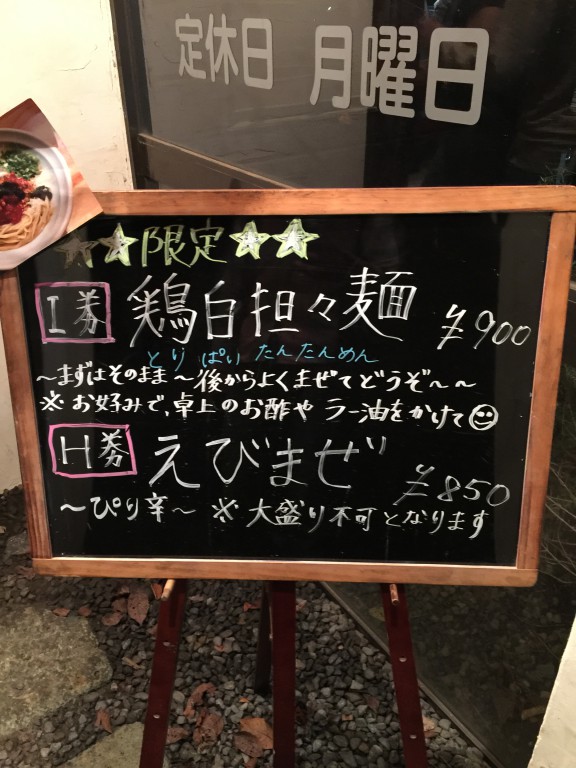 定休日 月曜日
☆☆限定☆☆
I券 鶏白担々麺 ¥900
とりぱいたんたんめん
〜まずはそのまま〜後からよくまぜてどうぞ〜〜
※お好みで、卓上のお酢やラー油をかけて☺
H券 えびまぜ ¥850
〜ぴり辛〜 ※大盛り不可となります